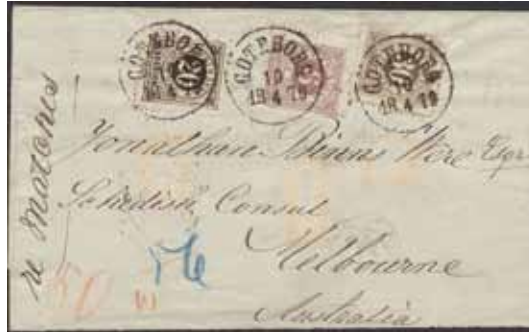 GÖTEBORG
18 4 79
GÖTEBORG
10
18 4 79
GÖTEBORG
18 4 79
Jonathan Binns Were Esqr
Swedish Consul
Melbourne
Australia